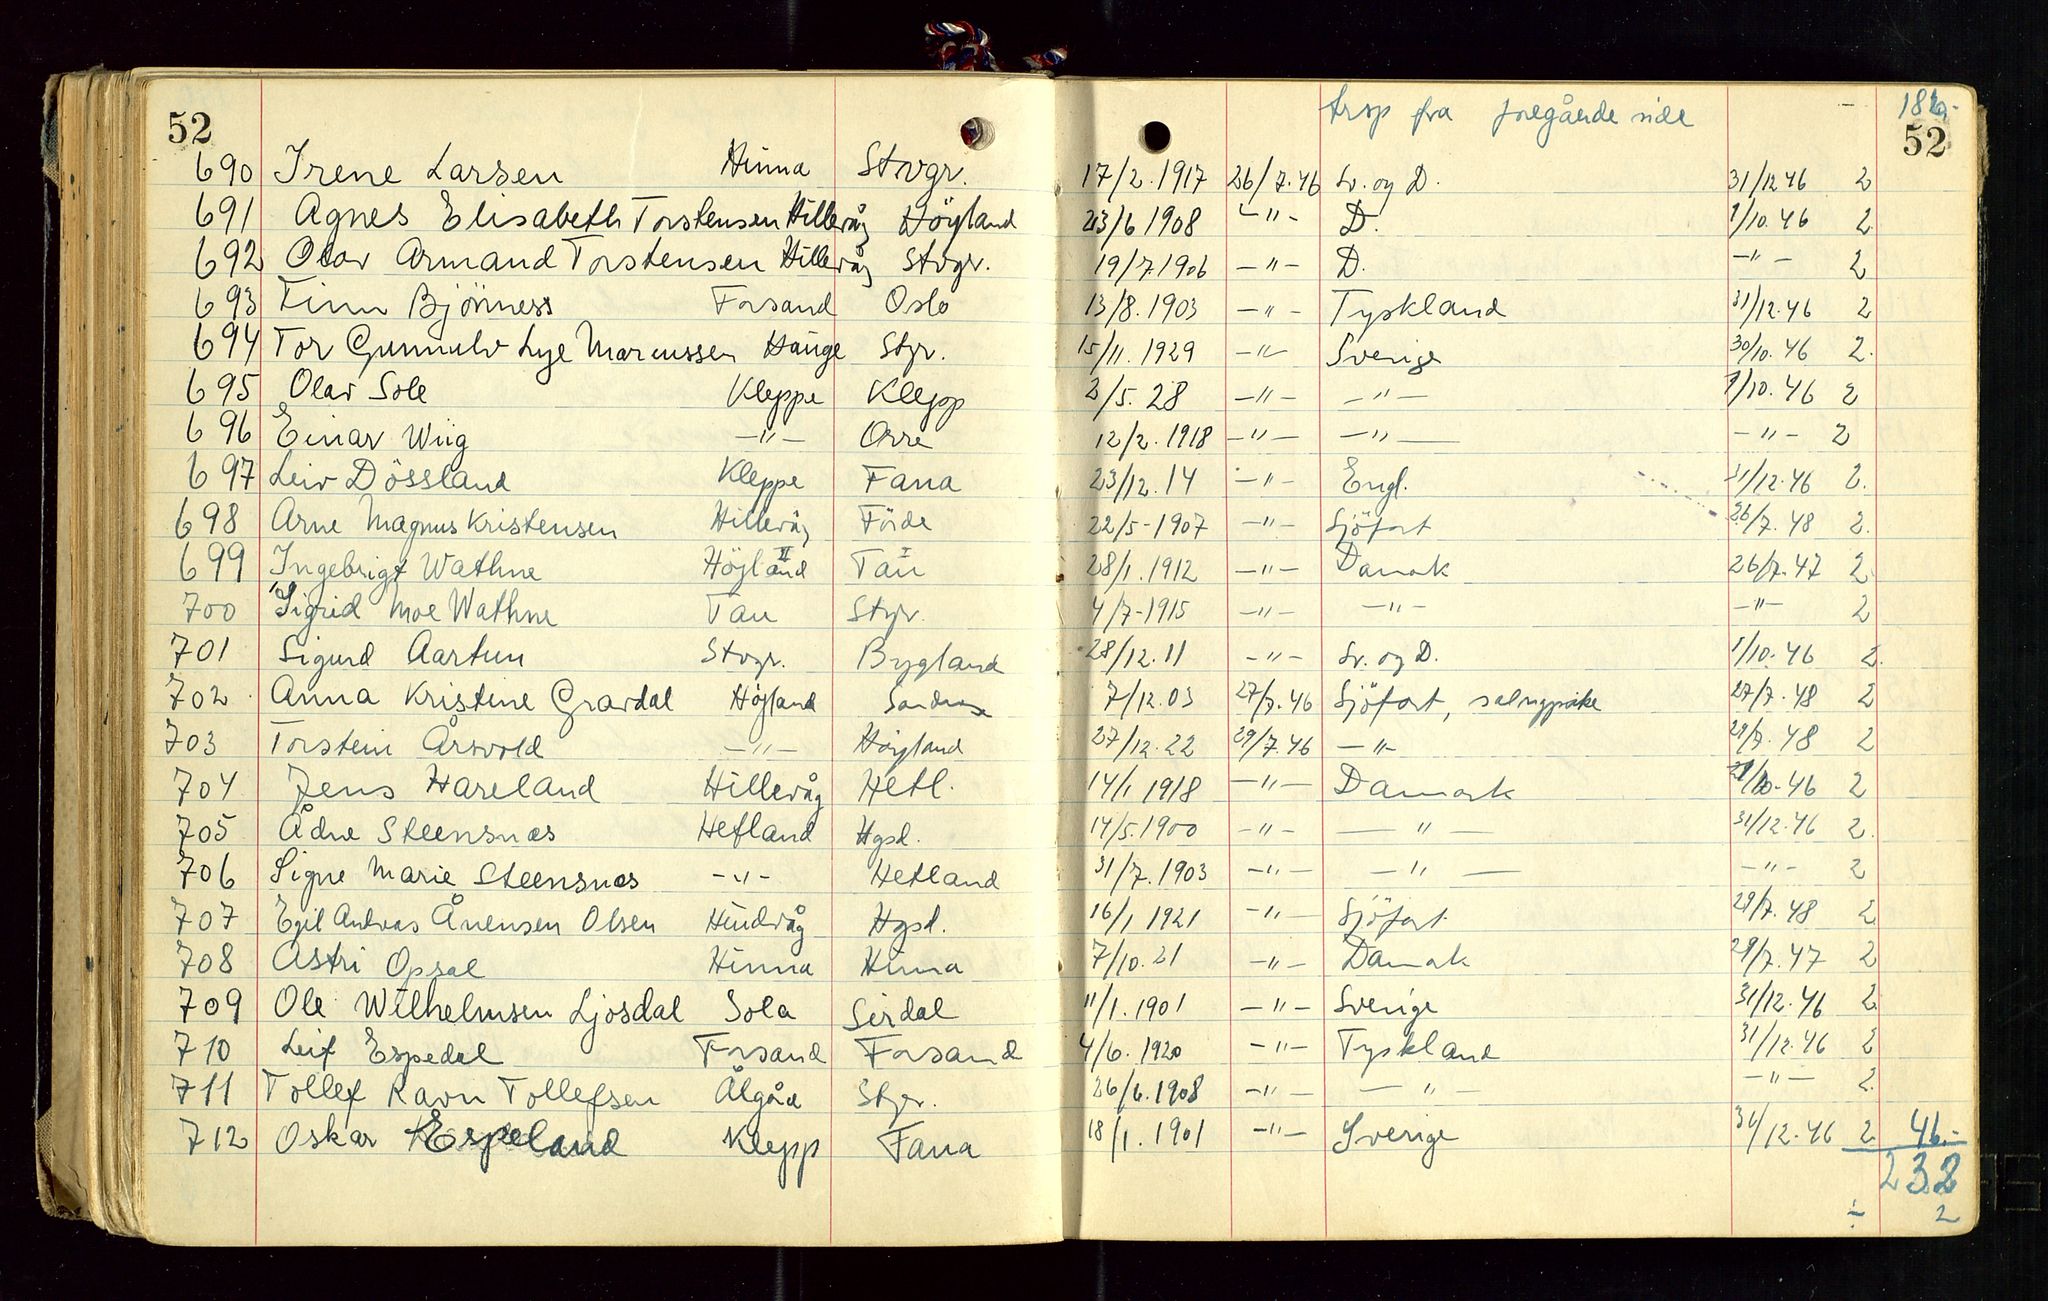 trsp fra foregående side 186.-
52 52
690 Irene Larsen Hinna Stvgr. 17/2.1917 26/7.46 Sv. og D. 31/12 46 2
691 Agnes Elisabeth Torstensen Hillevåg Höyland 23/6 1908 -"- D. 1/10.46 2
692 Olav Armand Torstensen Hillevåg Stvgr. 19/7.1906 -"- D. -"- 2
693 Finn Björness Forsand Oslo 13/8.1903 -"- Tyskland 31/12.46 2
694 Tor Gunnulv Lye Marcussen Hauge Stgr. 15/11.1929 -"- Sverige 30/10.46 2.
695 Olav Sole Kleppe Klepp 2/5.28 -"- -"- 1/10.46 2
696 Einar Wiig -"- Orre 12/2.1918 -"- -"- -"- 2
697 Leiv Dössland Kleppe Fana 23/12.14 -"- Engl. 31/12.46 2.
698 Arne Magnus Kristensen Hillevåg Förde 22/5-1907 -"- Sjöfart 26/7.48 2.
699 Ingebrigt Wathne Höyland II Tau I 28/1.1912 -"- Danmk 26/7.47 2
700 Sigrid Moe Wathne Tau Stgr. 4/7-1915 -"- -"- -"- 2
701 Sigurd Aartun Stvgr. Bygland 28/12.11 -"- Sv. og D. 1/10.46 2.
702 Anna Kristine Gravdal Höyland Sandnes 7/12.03 27/7.46 Sjöfart, salngpike 27/7.48 2
703 Torstein Årsvold -"- Höyland 27/12.22 29/7.46 -"- 29/7.48 2
704 Jens Hareland Hillevåg Hetl. 14/1 1918 -"- Danmark 29/10.46 2
705 Ådne Steensnæs Hetland Hgsd. 14/5.1900 -"- -"- 31/12.46 2.
706 Signe Marie Steensnæs -"- Hetland 31/7.1903 -"- -"- -"- 2
707 Egil Andreas Ånensen Olsen Hindvåg Hgsd. 16/1 1921 -"- Sjöfart 29/7.48 2
708 Astri Opsal Hinna Hinna 7/10.21 -"- Danmk 29/7.47 2
709 Ole Wilhelmsen Ljosdal Sola Sirdal 11/1.1901 -"- Sverige 31/12.46 2
710 Leif Espedal Forsand Forsand 4/6.1920 -"- Tyskland 31/12.46 2
711 Tollef Ravn Tollefsen Ålgård Stgr. 26/6.1908 -"- -"- -"- 2.
712 Oskar Espeland Klepp Fana 18/1.1901 -"- Sverige 31/12.46 2 46.-
232
÷ 2